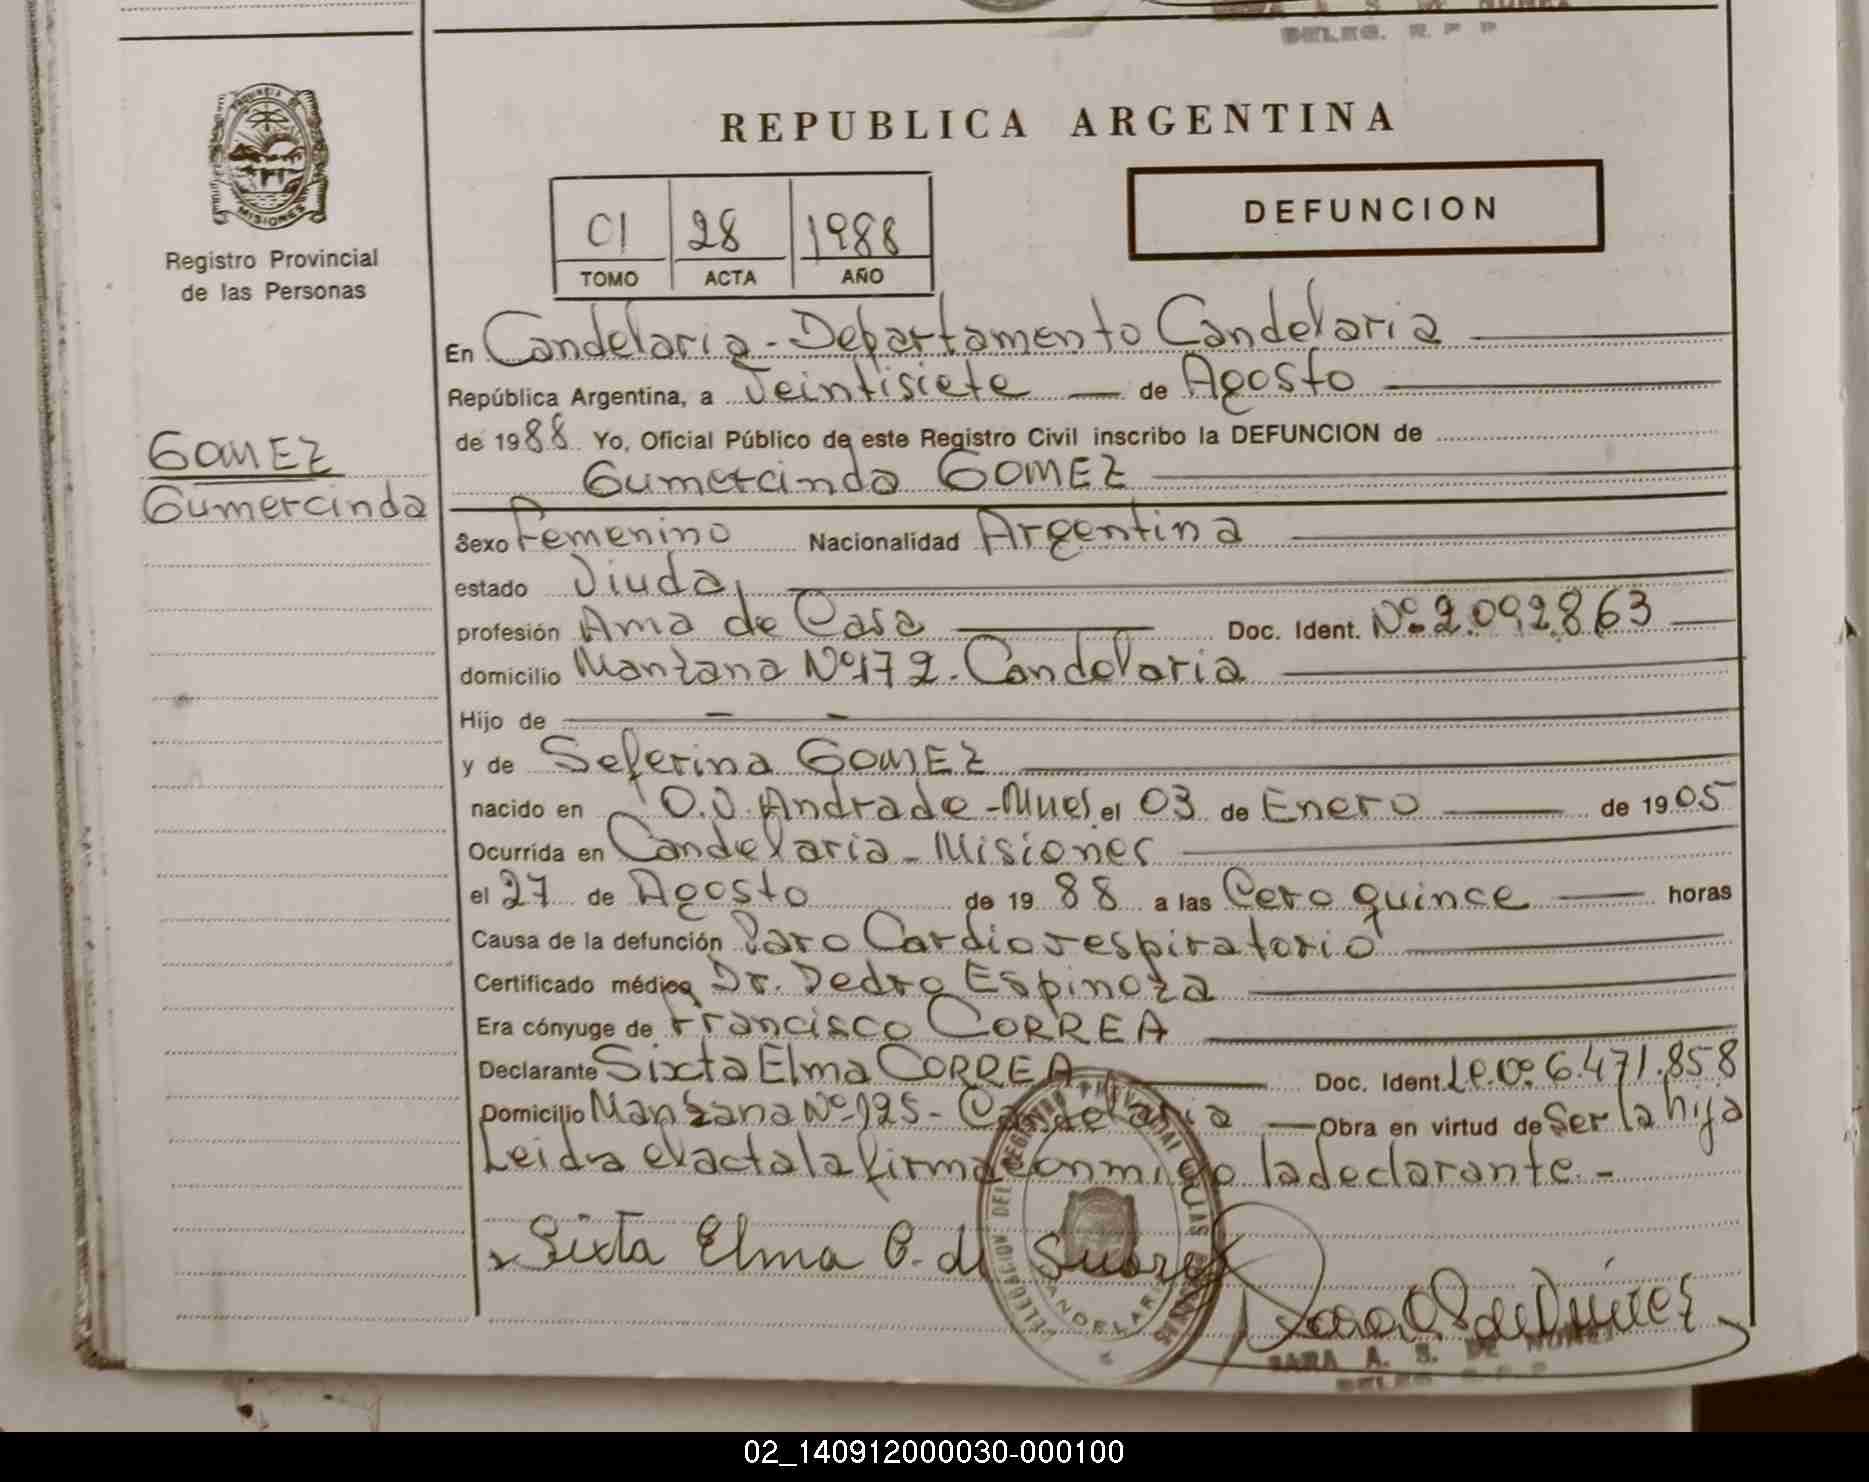 DELEG. R. P P
PROVINCIA DE
MISIONES
Registro Provincial
de las Personas
REPUBLICA ARGENTINA
01 28 1988
TOMO ACTA AÑO
DEFUNCION
En Candelaria - Departamento Candelaria
República Argentina, a Veintisiete de Agosto
de 1988 Yo, Oficial Público de este Registro Civil inscribo la DEFUNCION de
GOMEZ
Gumercinda
Gumercinda GOMEZ
Sexo Femenino Nacionalidad Argentina
estado Viuda
profesión Ama de Casa Doc. Ident. Nº 2.092.863
domicilio Manzana Nº 172 - Candelaria
Hijo de
y de Seferina GOMEZ
nacido en O.V. Andrade - Mnes el 03 de Enero de 1905
Ocurrida en Candelaria - Misiones
el 27 de Agosto de 1988 a las Cero quince horas
Causa de la defunción Paro Cardiorespiratorio
Certificado médico Dr. Pedro Espinoza
Era cónyuge de Francisco CORREA
Declarante Sixta Elma CORREA Doc. Ident. 6.471.858
Domicilio Manzana Nº 125 - Candelaria Obra en virtud de Ser la hija
Leida exacta la firma conmigo la declarante. -
Sixta Elma C. de Suarez
SARA A. S. DE NUÑEZ
DELEG. R. P. P
02_140912000030-000100